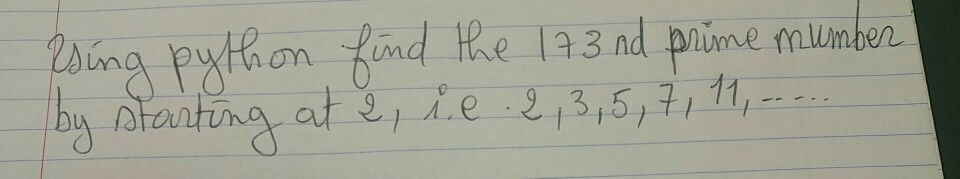 Using python find the 173 nd prime number
by starting at 2, i.e. 2, 3, 5, 7, 11, -----